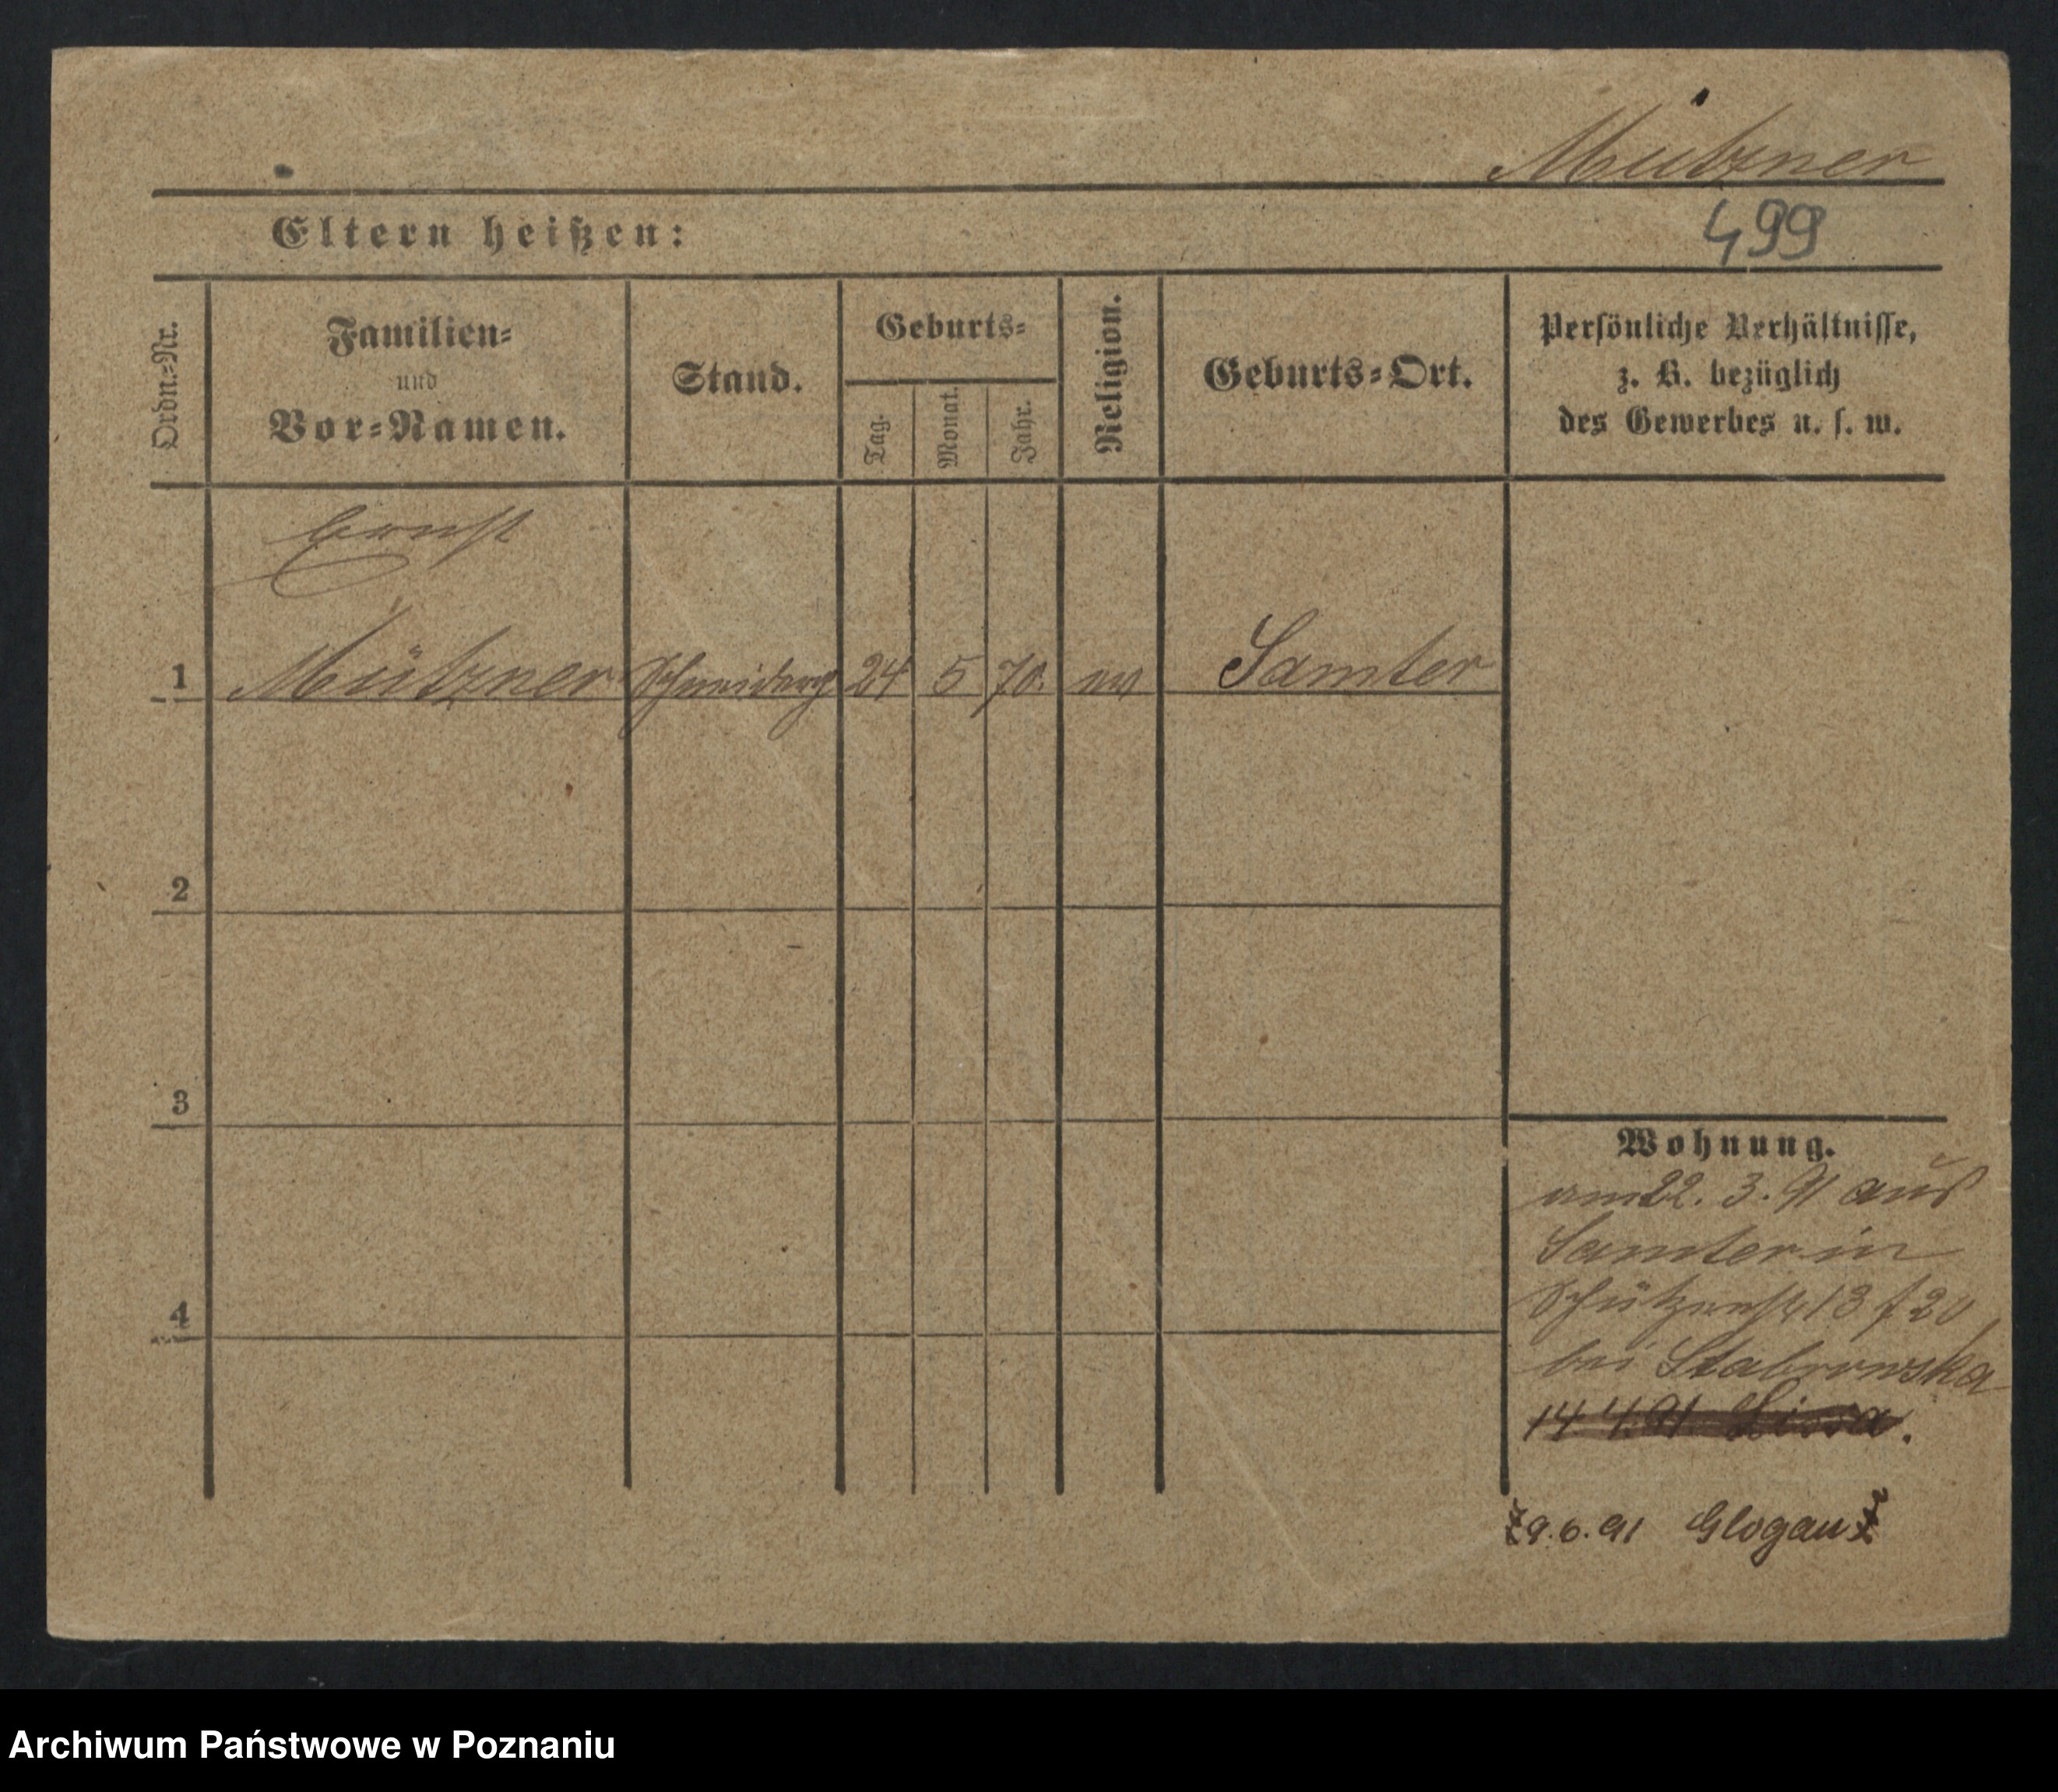 Mützner
Eltern heißen:
499
Ordn.=Nr.
Familien=
und
Vor=Namen.
Stand.
Geburts=
Tag.
Monat.
Jahr.
Religion.
Geburts=Ort.
Persönliche Verhältnisse,
z. B. bezüglich
des Gewerbes u. s. w.
Ernst
1 Mützner 24 5 70. ev Samter
2
3
4
Wohnung.
am 22. 3. 91 aus
Samter in
Schützenstr 13 f 20
bei Stabrowska
14 4 91 Lissa.
9. 6. 91 Glogau
Archiwum Państwowe w Poznaniu